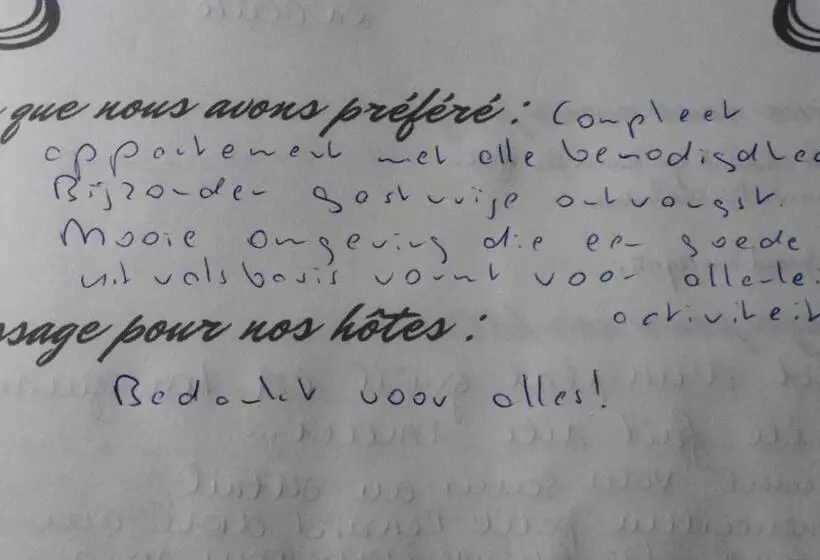 que nous avons préféré : Compleet
appartement met alle benodigdhed
Bijzonder gastvrije ontvangst.
Mooie omgeving die een goede
uitvalsbasis vormt voor allerlei
ssage pour nos hôtes : activiteit
Bedankt voor alles!